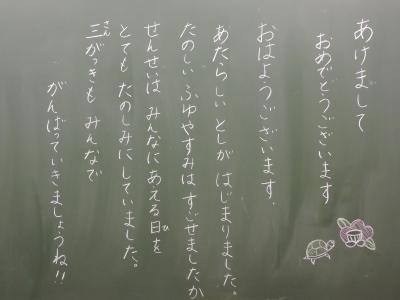 あけまして
おめでとうございます
おはようございます.
あたらしい としが はじまりました。
たのしい ふゆやすみは すごせましたか
せんせいは みんなにあえる日を
ひ
とても たのしみにしていました。
三がっきも みんなで
さん
がんばっていきましょうね!!